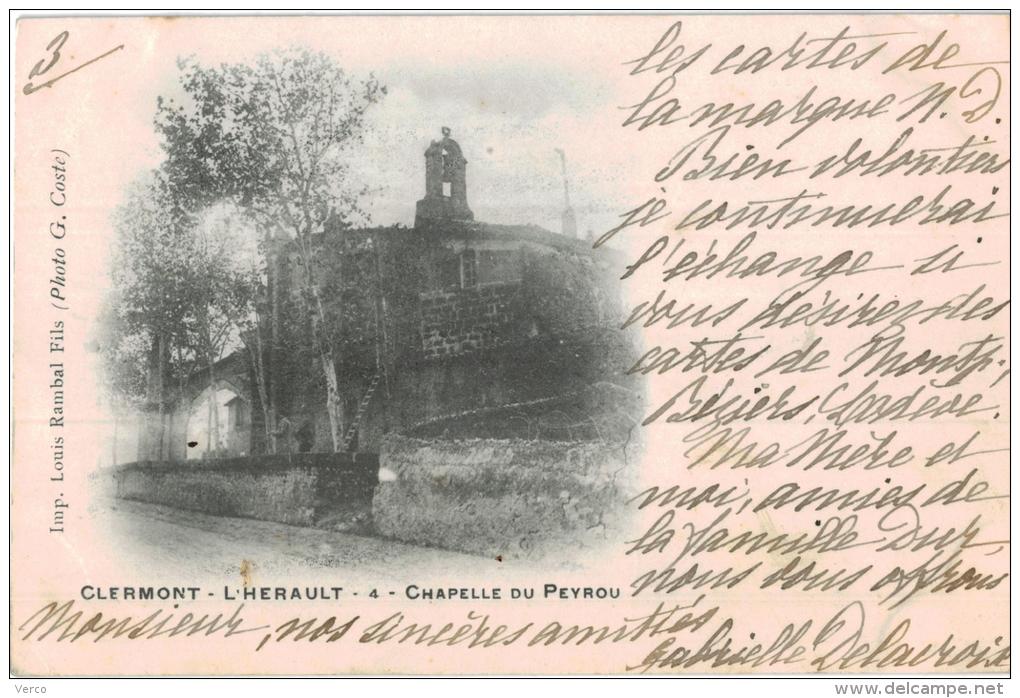 3
les cartes de
la marque N. D.
Bien volontiers
je continuerai
l'échange si
vous désirez des
cartes de Montp.,
Béziers, Lodève.
Ma Mère et
moi, amies de
la famille Dur,
nous vous offrons
Monsieur, nos sincères amitiés
Gabrielle Delacroix
Imp. Louis Rambal Fils (Photo G. Coste)
CLERMONT - L'HERAULT - 4 - CHAPELLE DU PEYROU
Verco
www.delcampe.net